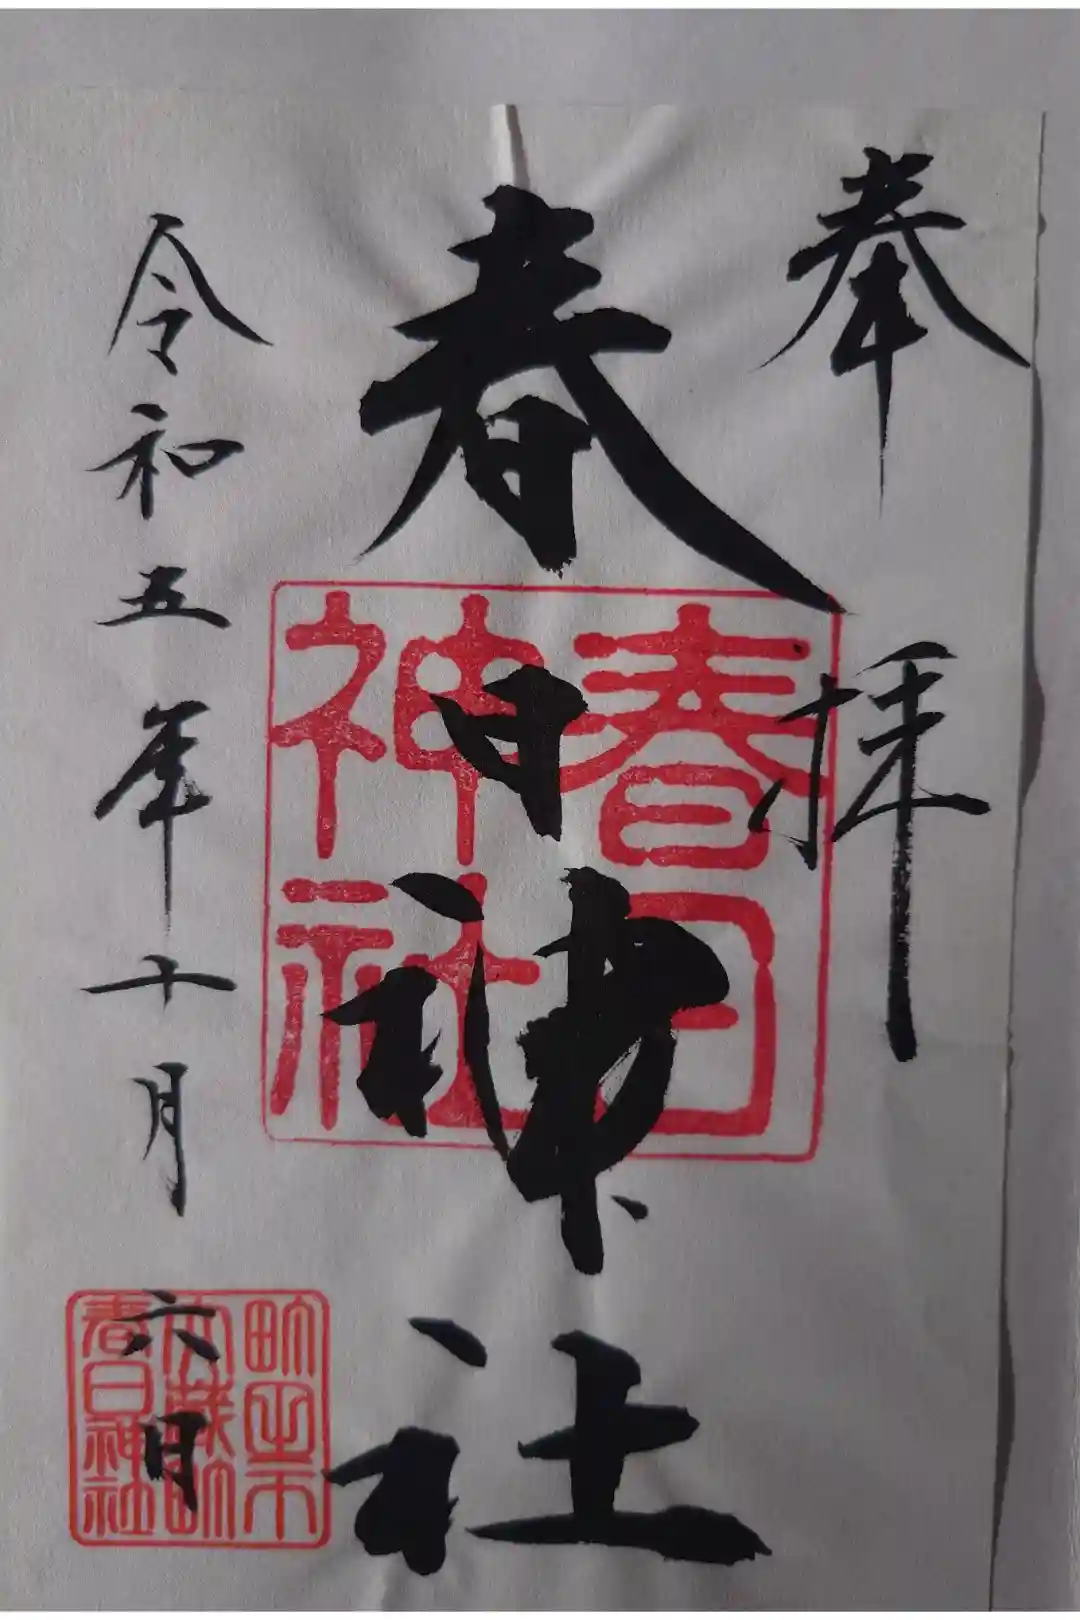 奉拝
春日神社
春日
神社
令和五年十月六日
春日神社